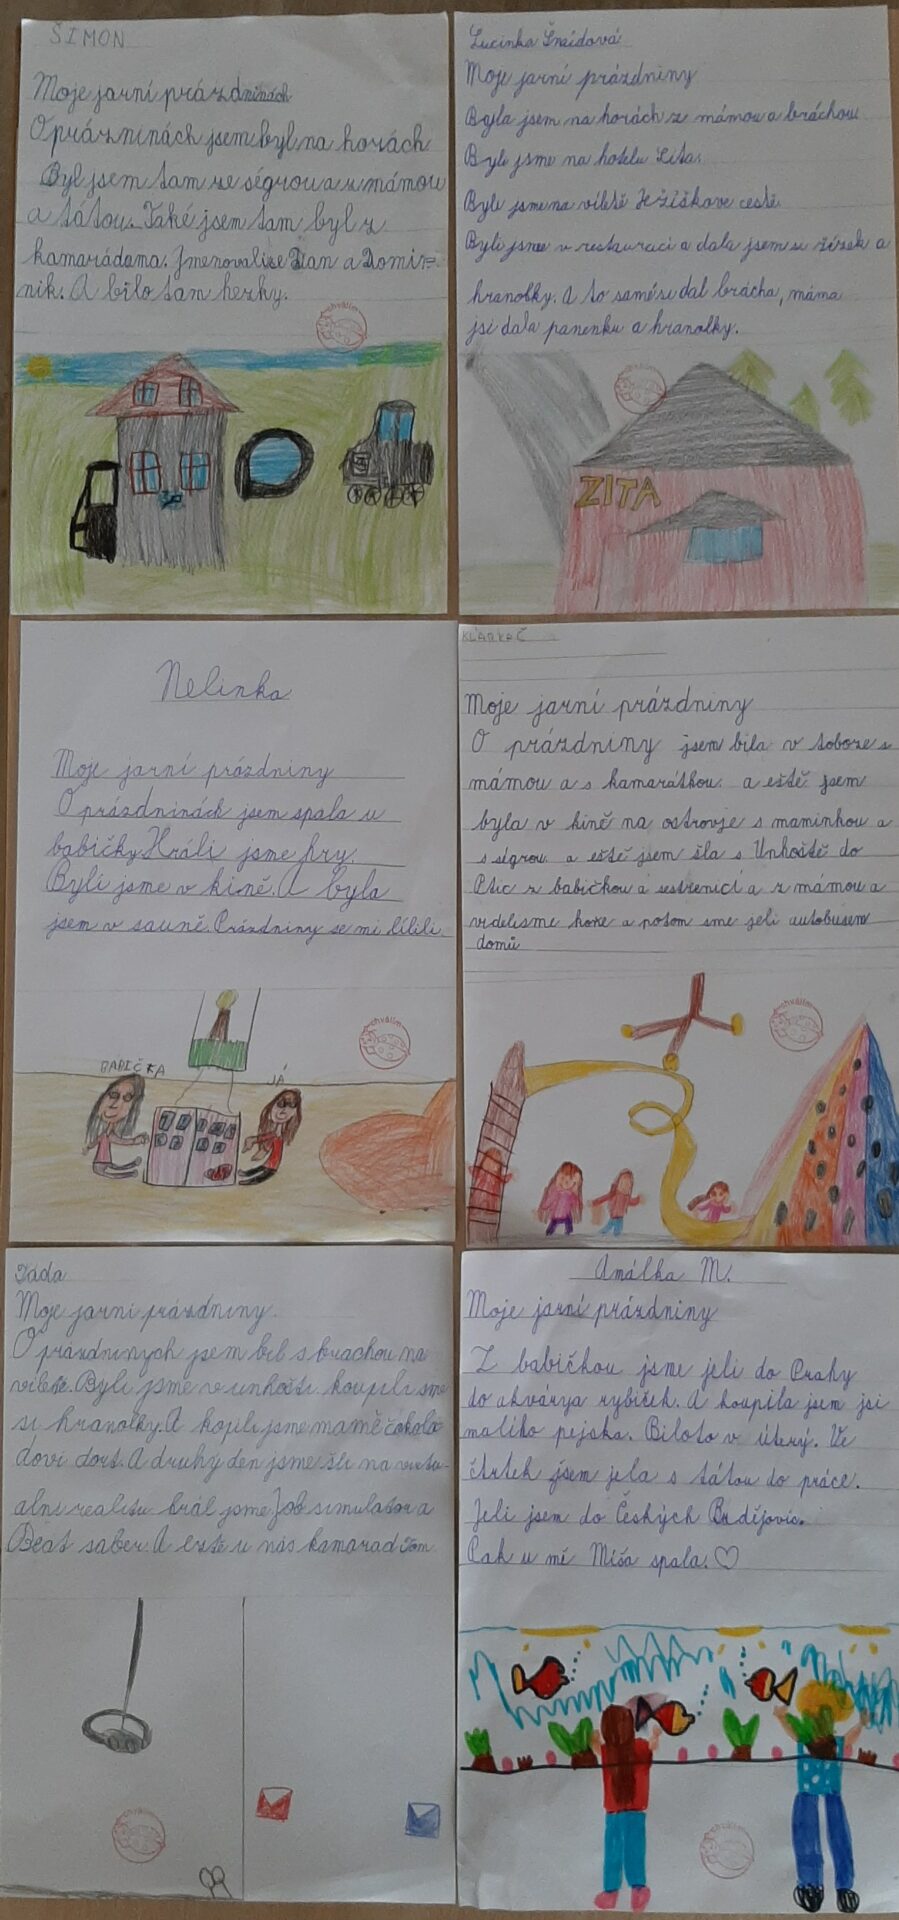 ŠIMON
Moje jarní prázdninách
O prázninách jsem byl na horách
Byl jsem tam ze ségrou a z mámou
a tátou. Také jsem tam byl z
kamarádama. Jmenovalise Dan a Domi-
nik. A bilo tam hezky.
chválím
Lucinka
Moje jarní prázdniny
Byla jsem na horách z mámou a bráchou
Byli jsme na hotelu Zita.
Byli jsme na víletě Ježíškove cestě
Byli jsme v restauraci a dala jsem si žízek a
hranolky. A to samé si dal brácha, máma
jsi dala panenku a hranolky.
chválím
ZITA
Nelinka
Moje jarní prázdniny
O prázdninách jsem spala u
babičky. Hráli jsme hry.
Byli jsme v kině. A byla
jsem v sauně. Prázdniny se mi líbili.
chválím
BABIČKA
JÁ
Moje jarní prázdniny
O prázdniny jsem bila v toboze s
mámou a s kamarátkou. a eště jsem
byla v kině na ostrovje s maminkou a
s ségrou a eště jsem šla s Unhoště do
Ptic z babičkou a sestřenicí a z mámou a
videlisme koně a potom sme jeli autobusem
domů
chválím
Táda
Moje jarni prázdniny.
O prázdninych jsem bil s brachou na
viletě. Byli jsme v unhošti. koupili sme
si hranolky. A kopili jsme mamě čokolá
dovi dort. A druhý den jsme šli na virtu-
alni realitu hrál jsme Job simulator a
Beat saber. A eště u nás kamarad Tom
chválím
Amálka M.
Moje jarní prázdniny
Z babičkou jsme jeli do Prahy
do akvárya rybiček. A koupila jsem jsi
maliho pejska. Biloto v úterý. Ve
čtrtek jsem jela s tátou do práce.
Jeli jsem do Českých Budějovic.
Pak u mě Míša spala. ♡
chválím